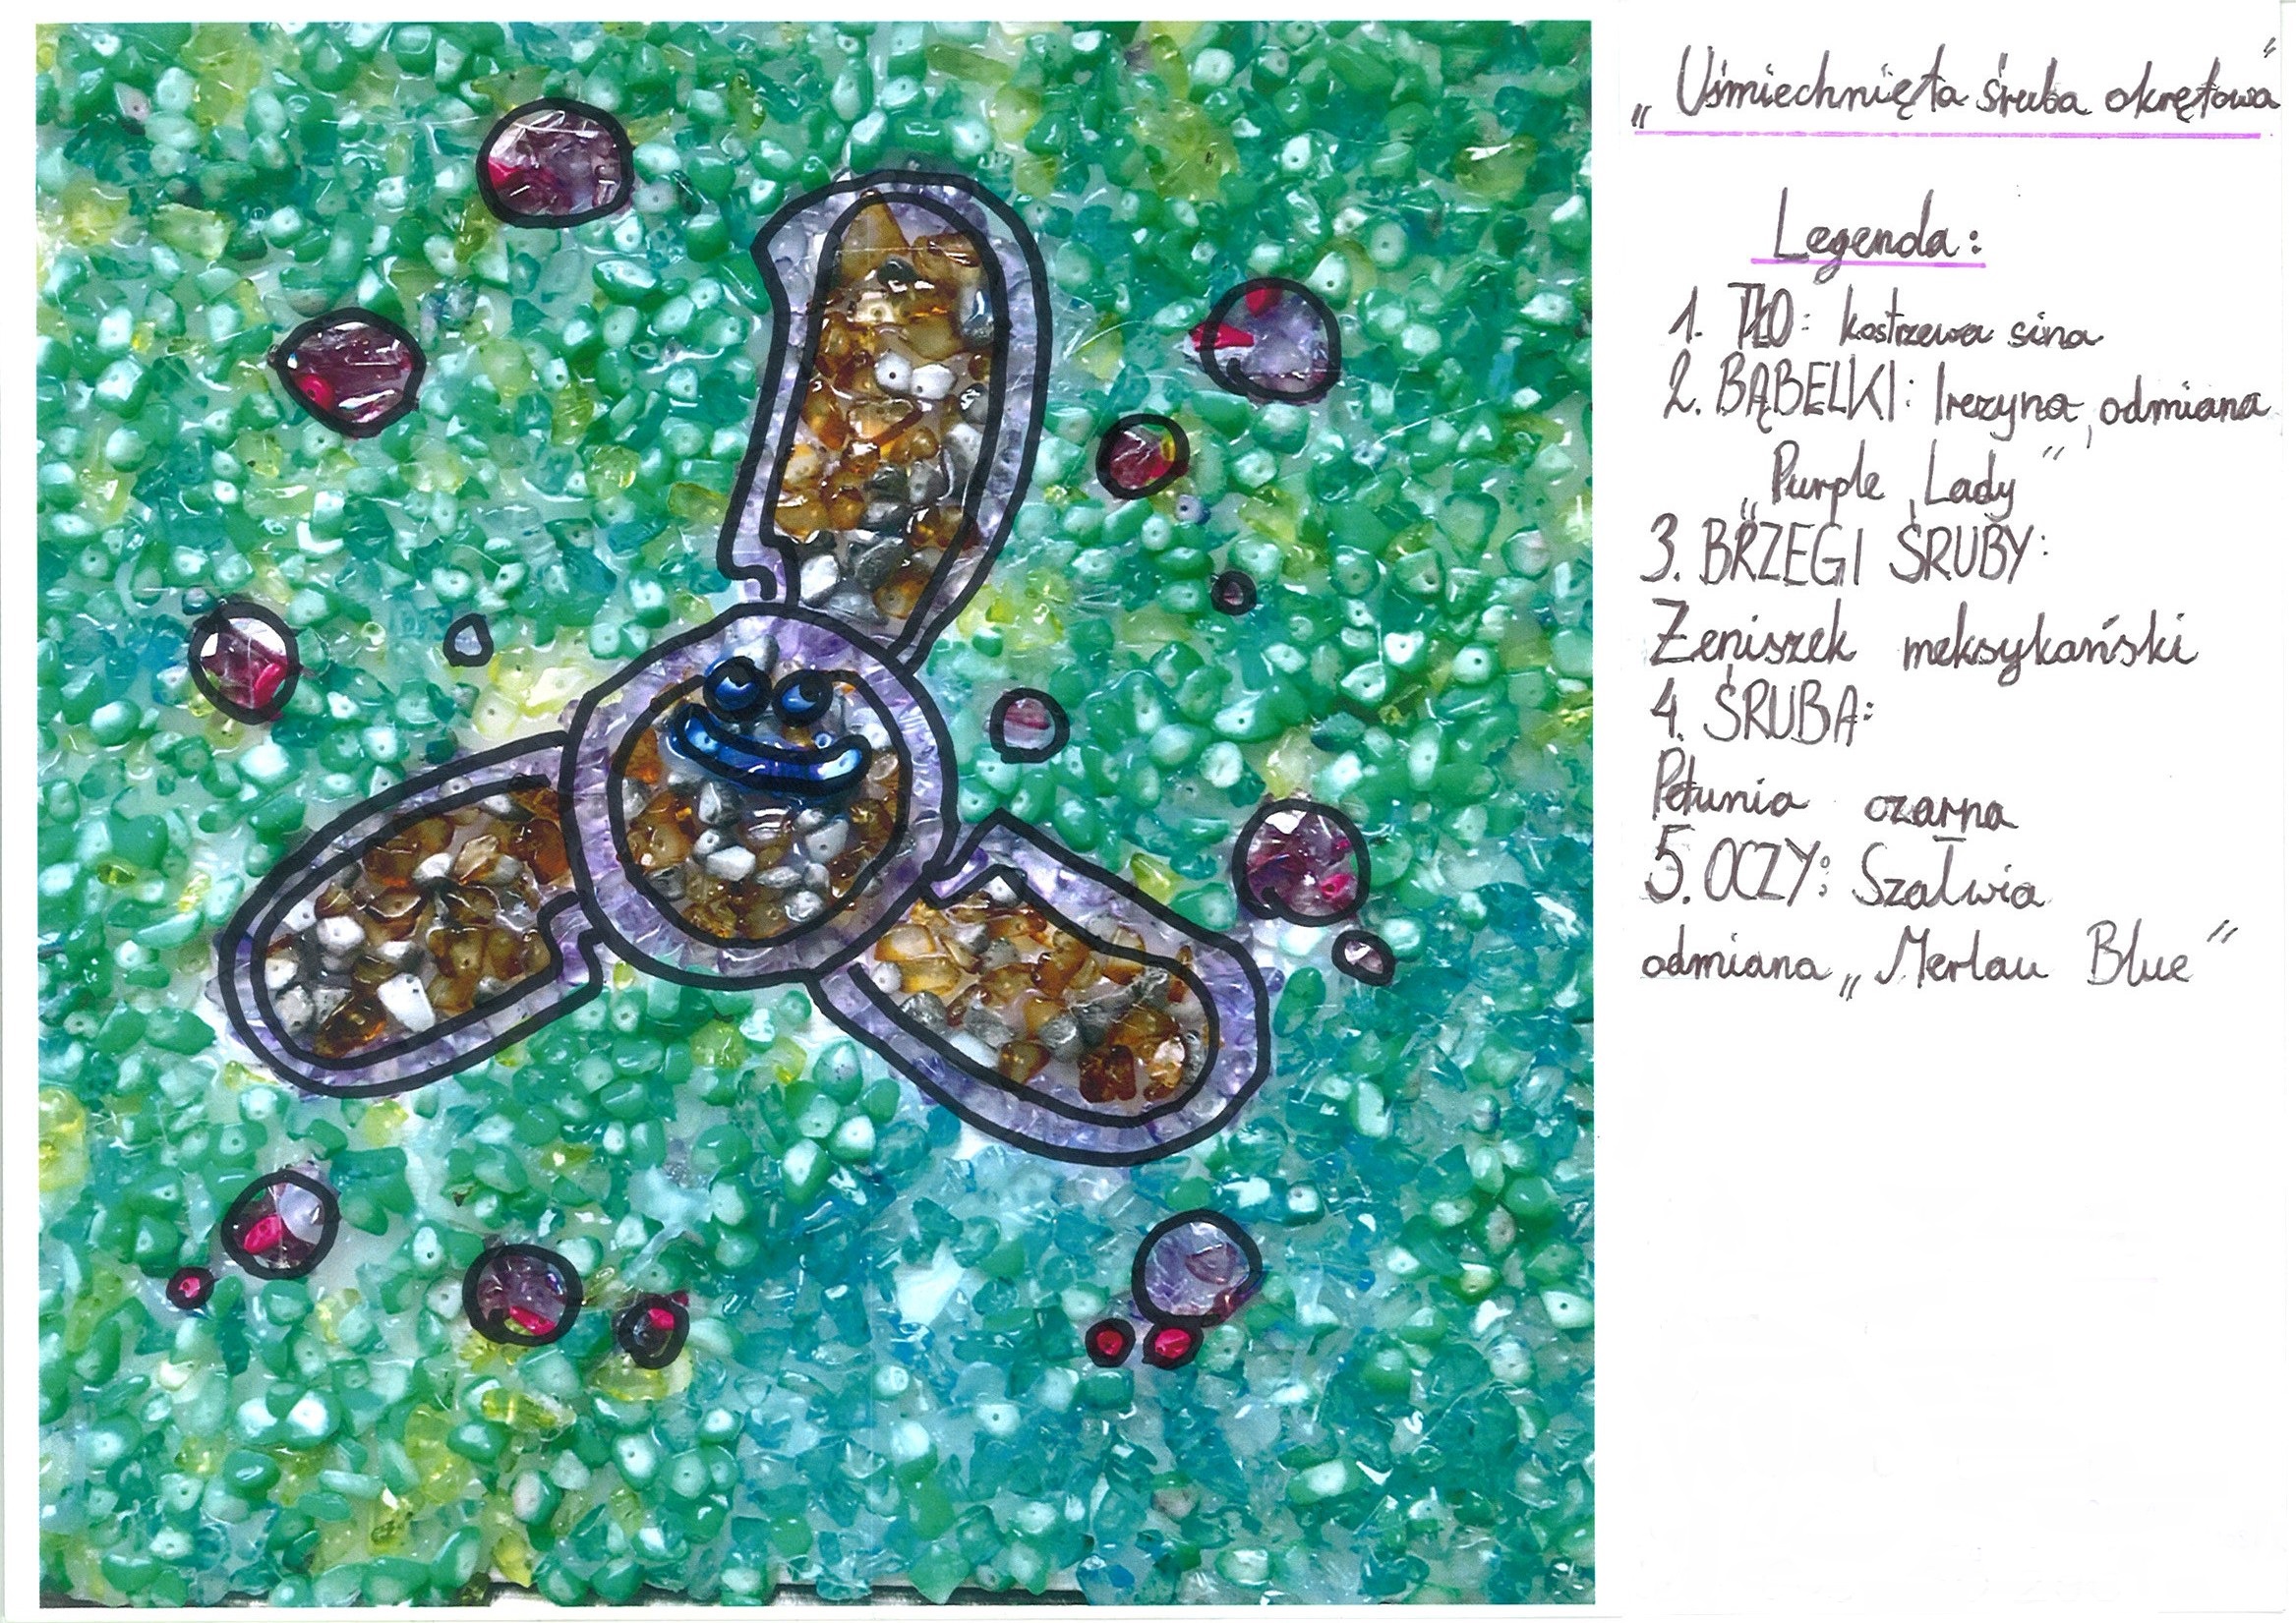 „Uśmiechnięta śruba okrętowa"
Legenda:
1. TŁO: kostrzewa sina
2. BĄBELKI: Irezyna, odmiana
„Purple Lady"
3. BRZEGI ŚRUBY:
Żeniszek meksykański
4. ŚRUBA:
Petunia czarna
5. OCZY: Szałwia
odmiana „Merlau Blue"